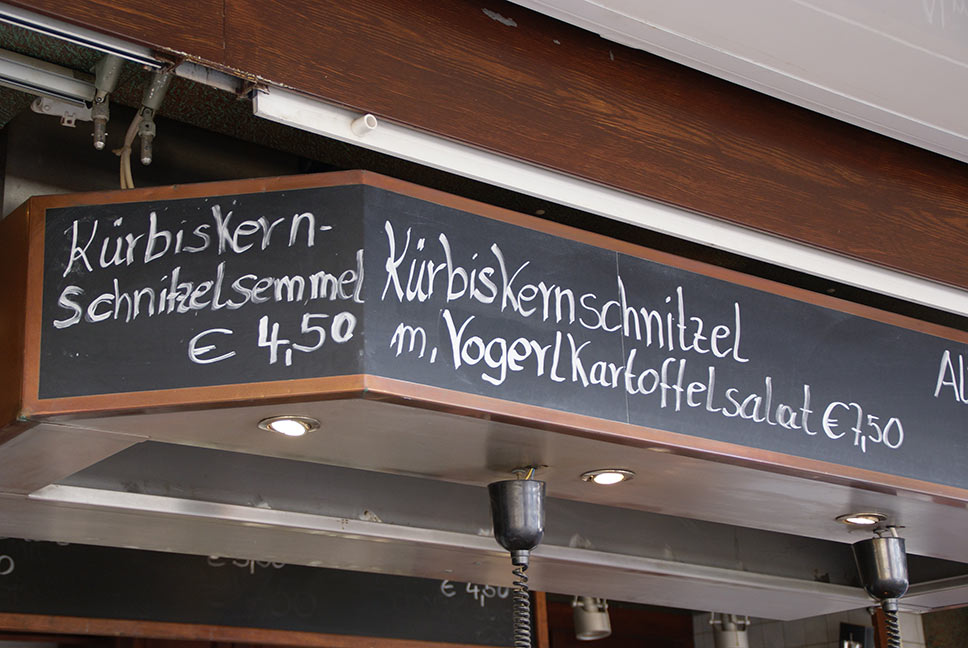 Kürbiskern-
Schnitzelsemmel
€ 4,50
Kürbiskernschnitzel
m. Vogerlkartoffelsalat €7,50
€ 4,50